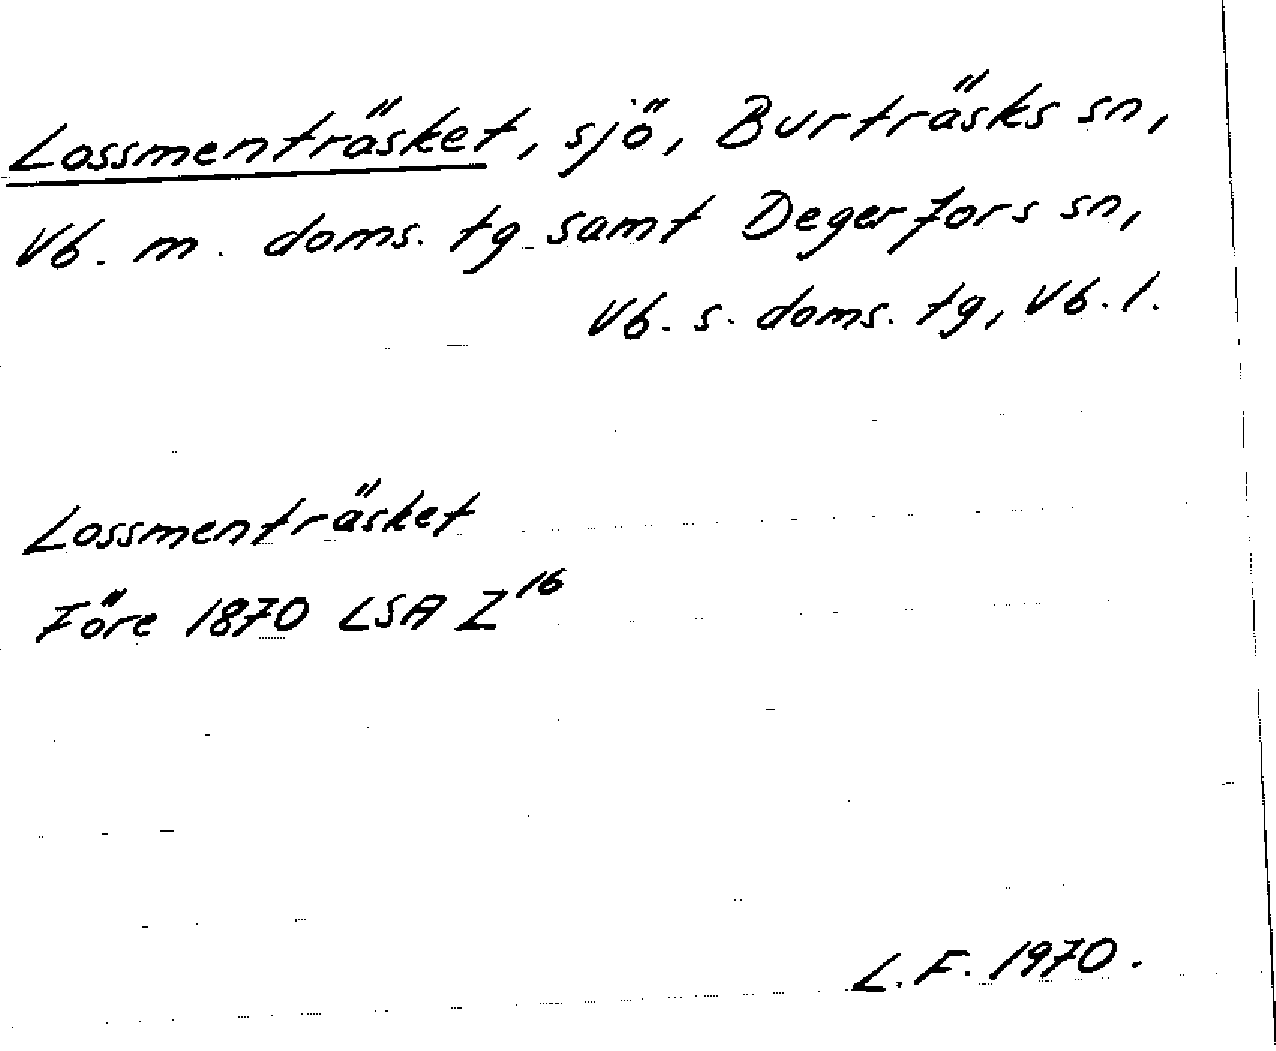 Lossmenträsket, sjö, Burträsks sn,
Vb. m. doms. tg samt Degerfors sn,
Vb. s. doms. tg, Vb. l.
Lossmenträsket
Före 1870 LSA Z16
L. F. 1970.